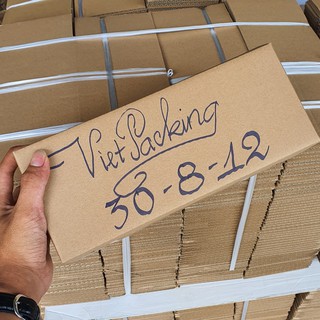 Viet Packing
30-8-12